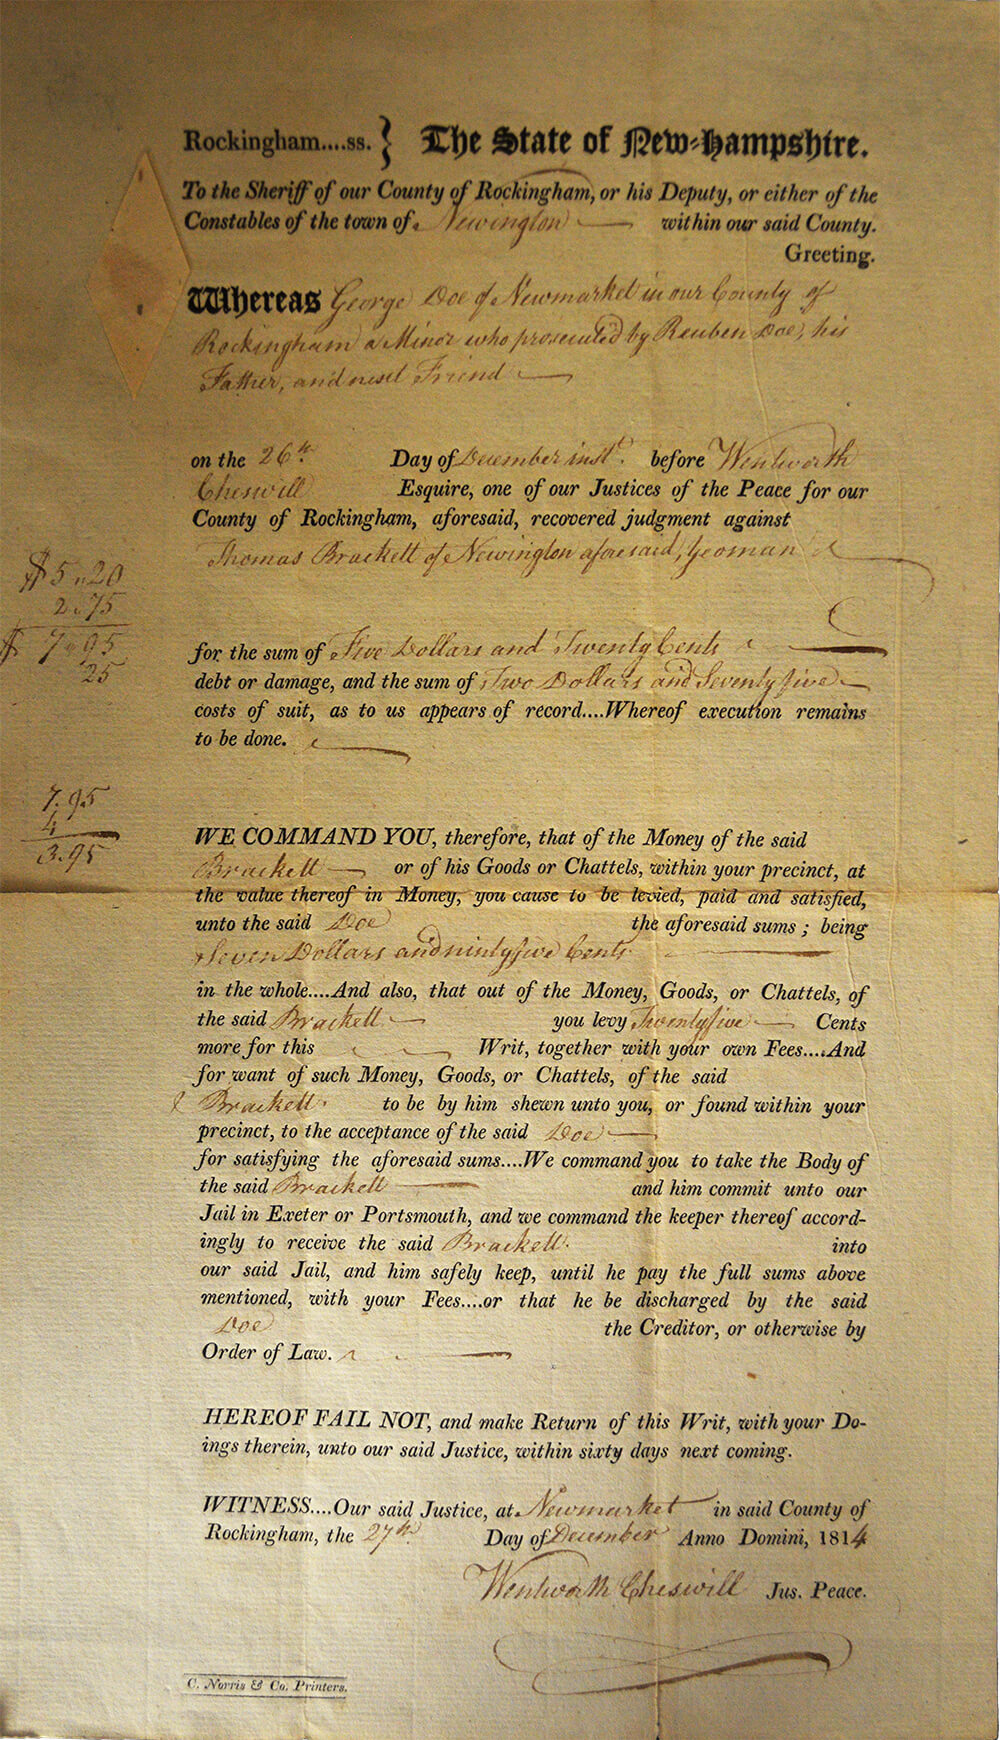 Rockingham....ss. } The State of New-Hampshire.
To the Sheriff of our County of Rockingham, or his Deputy, or either of the
Constables of the town of Newington within our said County.
Greeting.
Whereas George Doe of Newmarket in our County of
Rockingham a Minor who prosecuted by Reuben Doe, his
Father, and next Friend
on the 26th Day of December inst. before Wentworth
Cheswill Esquire, one of our Justices of the Peace for our
County of Rockingham, aforesaid, recovered judgment against
Thomas Brackett of Newington aforesaid, Yeoman
$5.20
2.75
$7.95
25
for the sum of Five Dollars and Twenty Cents
debt or damage, and the sum of Two Dollars and Seventyfive
costs of suit, as to us appears of record....Whereof execution remains
to be done.
7.95
4
3.95
WE COMMAND YOU, therefore, that of the Money of the said
Brackett or of his Goods or Chattels, within your precinct, at
the value thereof in Money, you cause to be levied, paid and satisfied,
unto the said Doe the aforesaid sums; being
Seven Dollars and nintyfive Cents
in the whole....And also, that out of the Money, Goods, or Chattels, of
the said Brackett you levy Twentyfive Cents
more for this Writ, together with your own Fees....And
for want of such Money, Goods, or Chattels, of the said
Brackett to be by him shewn unto you, or found within your
precinct, to the acceptance of the said Doe
for satisfying the aforesaid sums....We command you to take the Body of
the said Brackett and him commit unto our
Jail in Exeter or Portsmouth, and we command the keeper thereof accord-
ingly to receive the said Brackett into
our said Jail, and him safely keep, until he pay the full sums above
mentioned, with your Fees....or that he be discharged by the said
Doe the Creditor, or otherwise by
Order of Law.
HEREOF FAIL NOT, and make Return of this Writ, with your Do-
ings therein, unto our said Justice, within sixty days next coming.
WITNESS....Our said Justice, at Newmarket in said County of
Rockingham, the 27th Day of December Anno Domini, 1814
Wentworth Cheswill Jus. Peace.
C. Norris & Co. Printers.